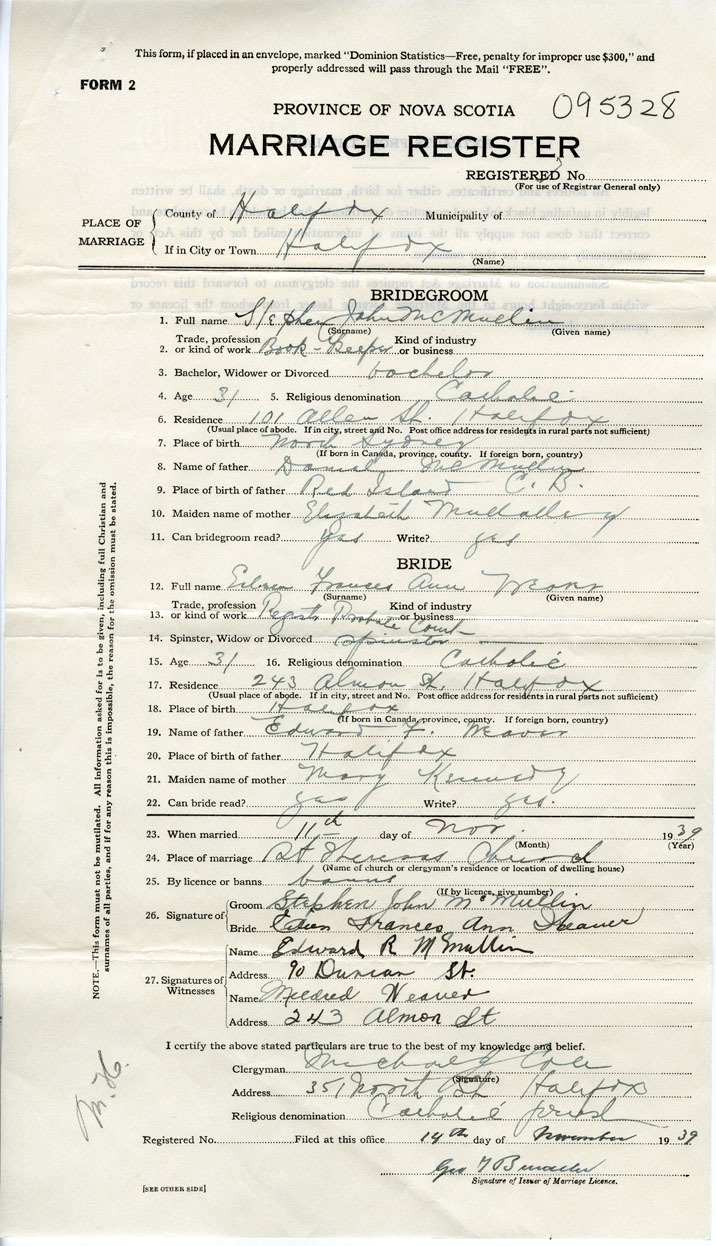 This form, if placed in an envelope, marked "Dominion Statistics—Free, penalty for improper use $300," and
properly addressed will pass through the Mail "FREE".
FORM 2
PROVINCE OF NOVA SCOTIA 095328
MARRIAGE REGISTER
REGISTERED No.
(For use of Registrar General only)
PLACE OF MARRIAGE
County of Halifax Municipality of
If in City or Town Halifax
(Name)
BRIDEGROOM
1. Full name Stephen John McMullin
(Surname) (Given name)
2. Trade, profession or kind of work Book-Keeper Kind of industry or business
3. Bachelor, Widower or Divorced bachelor
4. Age 31 5. Religious denomination Catholic
6. Residence 101 Allen St. Halifax
(Usual place of abode. If in city, street and No. Post office address for residents in rural parts not sufficient)
7. Place of birth North Sydney
(If born in Canada, province, county. If foreign born, country)
8. Name of father Daniel McMullin
9. Place of birth of father Red Island C. B.
10. Maiden name of mother Elizabeth Mullally
11. Can bridegroom read? yes Write? yes
BRIDE
12. Full name Eileen Frances Ann Weaver
(Surname) (Given name)
13. Trade, profession or kind of work Registr Probate Court Kind of industry or business
14. Spinster, Widow or Divorced spinster
15. Age 31 16. Religious denomination Catholic
17. Residence 243 Almon St. Halifax
(Usual place of abode. If in city, street and No. Post office address for residents in rural parts not sufficient)
18. Place of birth Halifax
(If born in Canada, province, county. If foreign born, country)
19. Name of father Edward F. Weaver
20. Place of birth of father Halifax
21. Maiden name of mother Mary Kennedy
22. Can bride read? yes Write? yes.
23. When married 11th day of Nov. 1939
(Month) (Year)
24. Place of marriage St Theresas Church
(Name of church or clergyman's residence or location of dwelling house)
25. By licence or banns banns
(If by licence, give number)
26. Signature of
Groom Stephen John McMullin
Bride Frances Ann Weaver
27. Signatures of Witnesses
Name Edward R McMullin
Address 90 Duncan St.
Name Mildred Weaver
Address 243 Almon St
I certify the above stated particulars are true to the best of my knowledge and belief.
Clergyman Michael J Cole
(Signature)
Address 351 North St Halifax
Religious denomination Catholic priest
Registered No. Filed at this office 14th day of November 1939
Geo
Signature of Issuer of Marriage Licence.
[SEE OTHER SIDE]
NOTE.—This form must not be mutilated. All information asked for is to be given, including full Christian and
surnames of all parties, and if for any reason this is impossible, the reason for the omission must be stated.
M. H.